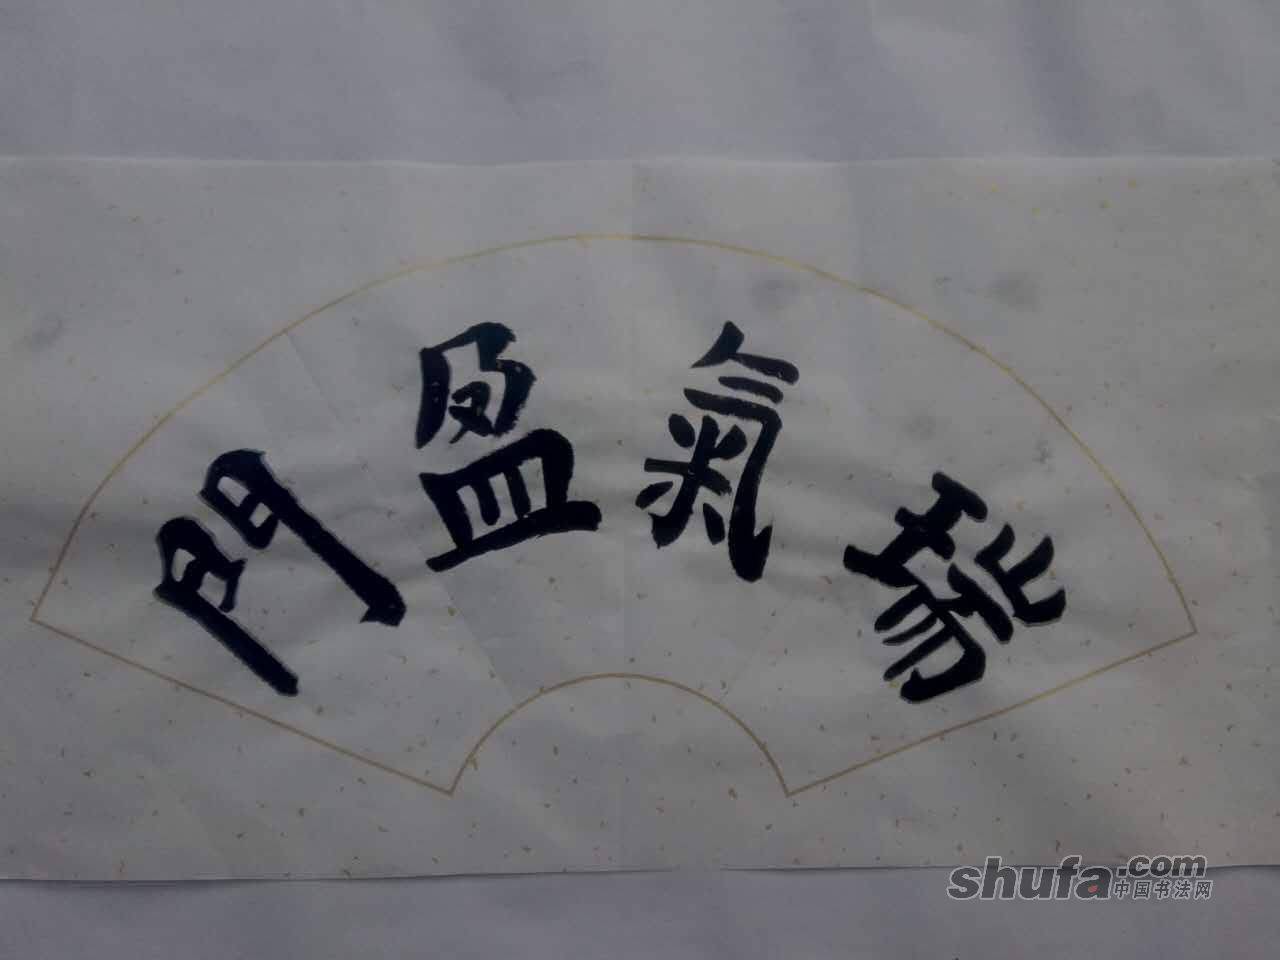 瑞氣盈門
shufa.com
中国书法网